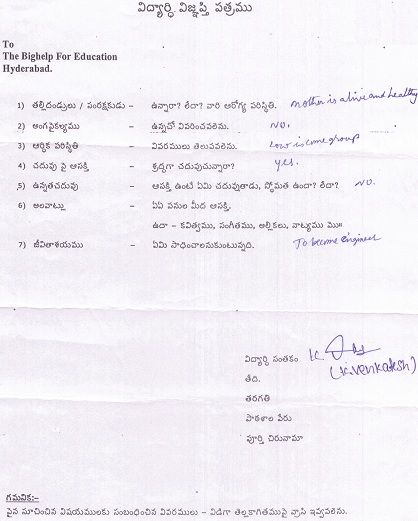 విద్యార్ధి విజ్ఞప్తి పత్రము
To
The Bighelp For Education
Hyderabad.
1) తల్లిదండ్రులు / సంరక్షకుడు – ఉన్నారా? లేదా? వారి ఆరోగ్య పరిస్థితి. Mother is alive and healthy
2) అంగవైకల్యము – ఉన్నచో వివరించవలెను. NO.
3) ఆర్థిక పరిస్థితి – వివరములు తెలుపవలెను. Low income group
4) చదువు పై ఆసక్తి – శ్రద్ధగా చదువుచున్నారా? yes.
5) ఉన్నతచదువు – ఆసక్తి ఉంటే ఏమి చదువుతాడు, స్తోమత ఉందా? లేదా? NO.
6) అలవాట్లు – ఏఏ పనుల మీద ఆసక్తి.
ఉదా – కవిత్వము, సంగీతము, అల్లికలు, నాట్యము ము॥
7) జీవితాశయము – ఏమి సాధించాలనుకుంటున్నది. To become Engineer
విద్యార్ధి సంతకం K.
(K.Venkatesh)
తేది.
తరగతి
పాఠశాల పేరు
పూర్తి చిరునామా
గమనిక:-
పైన సూచించిన విషయములకు సంబంధించిన వివరములు – విడిగా తెల్లకాగితముపై వ్రాసి ఇవ్వవలెను.